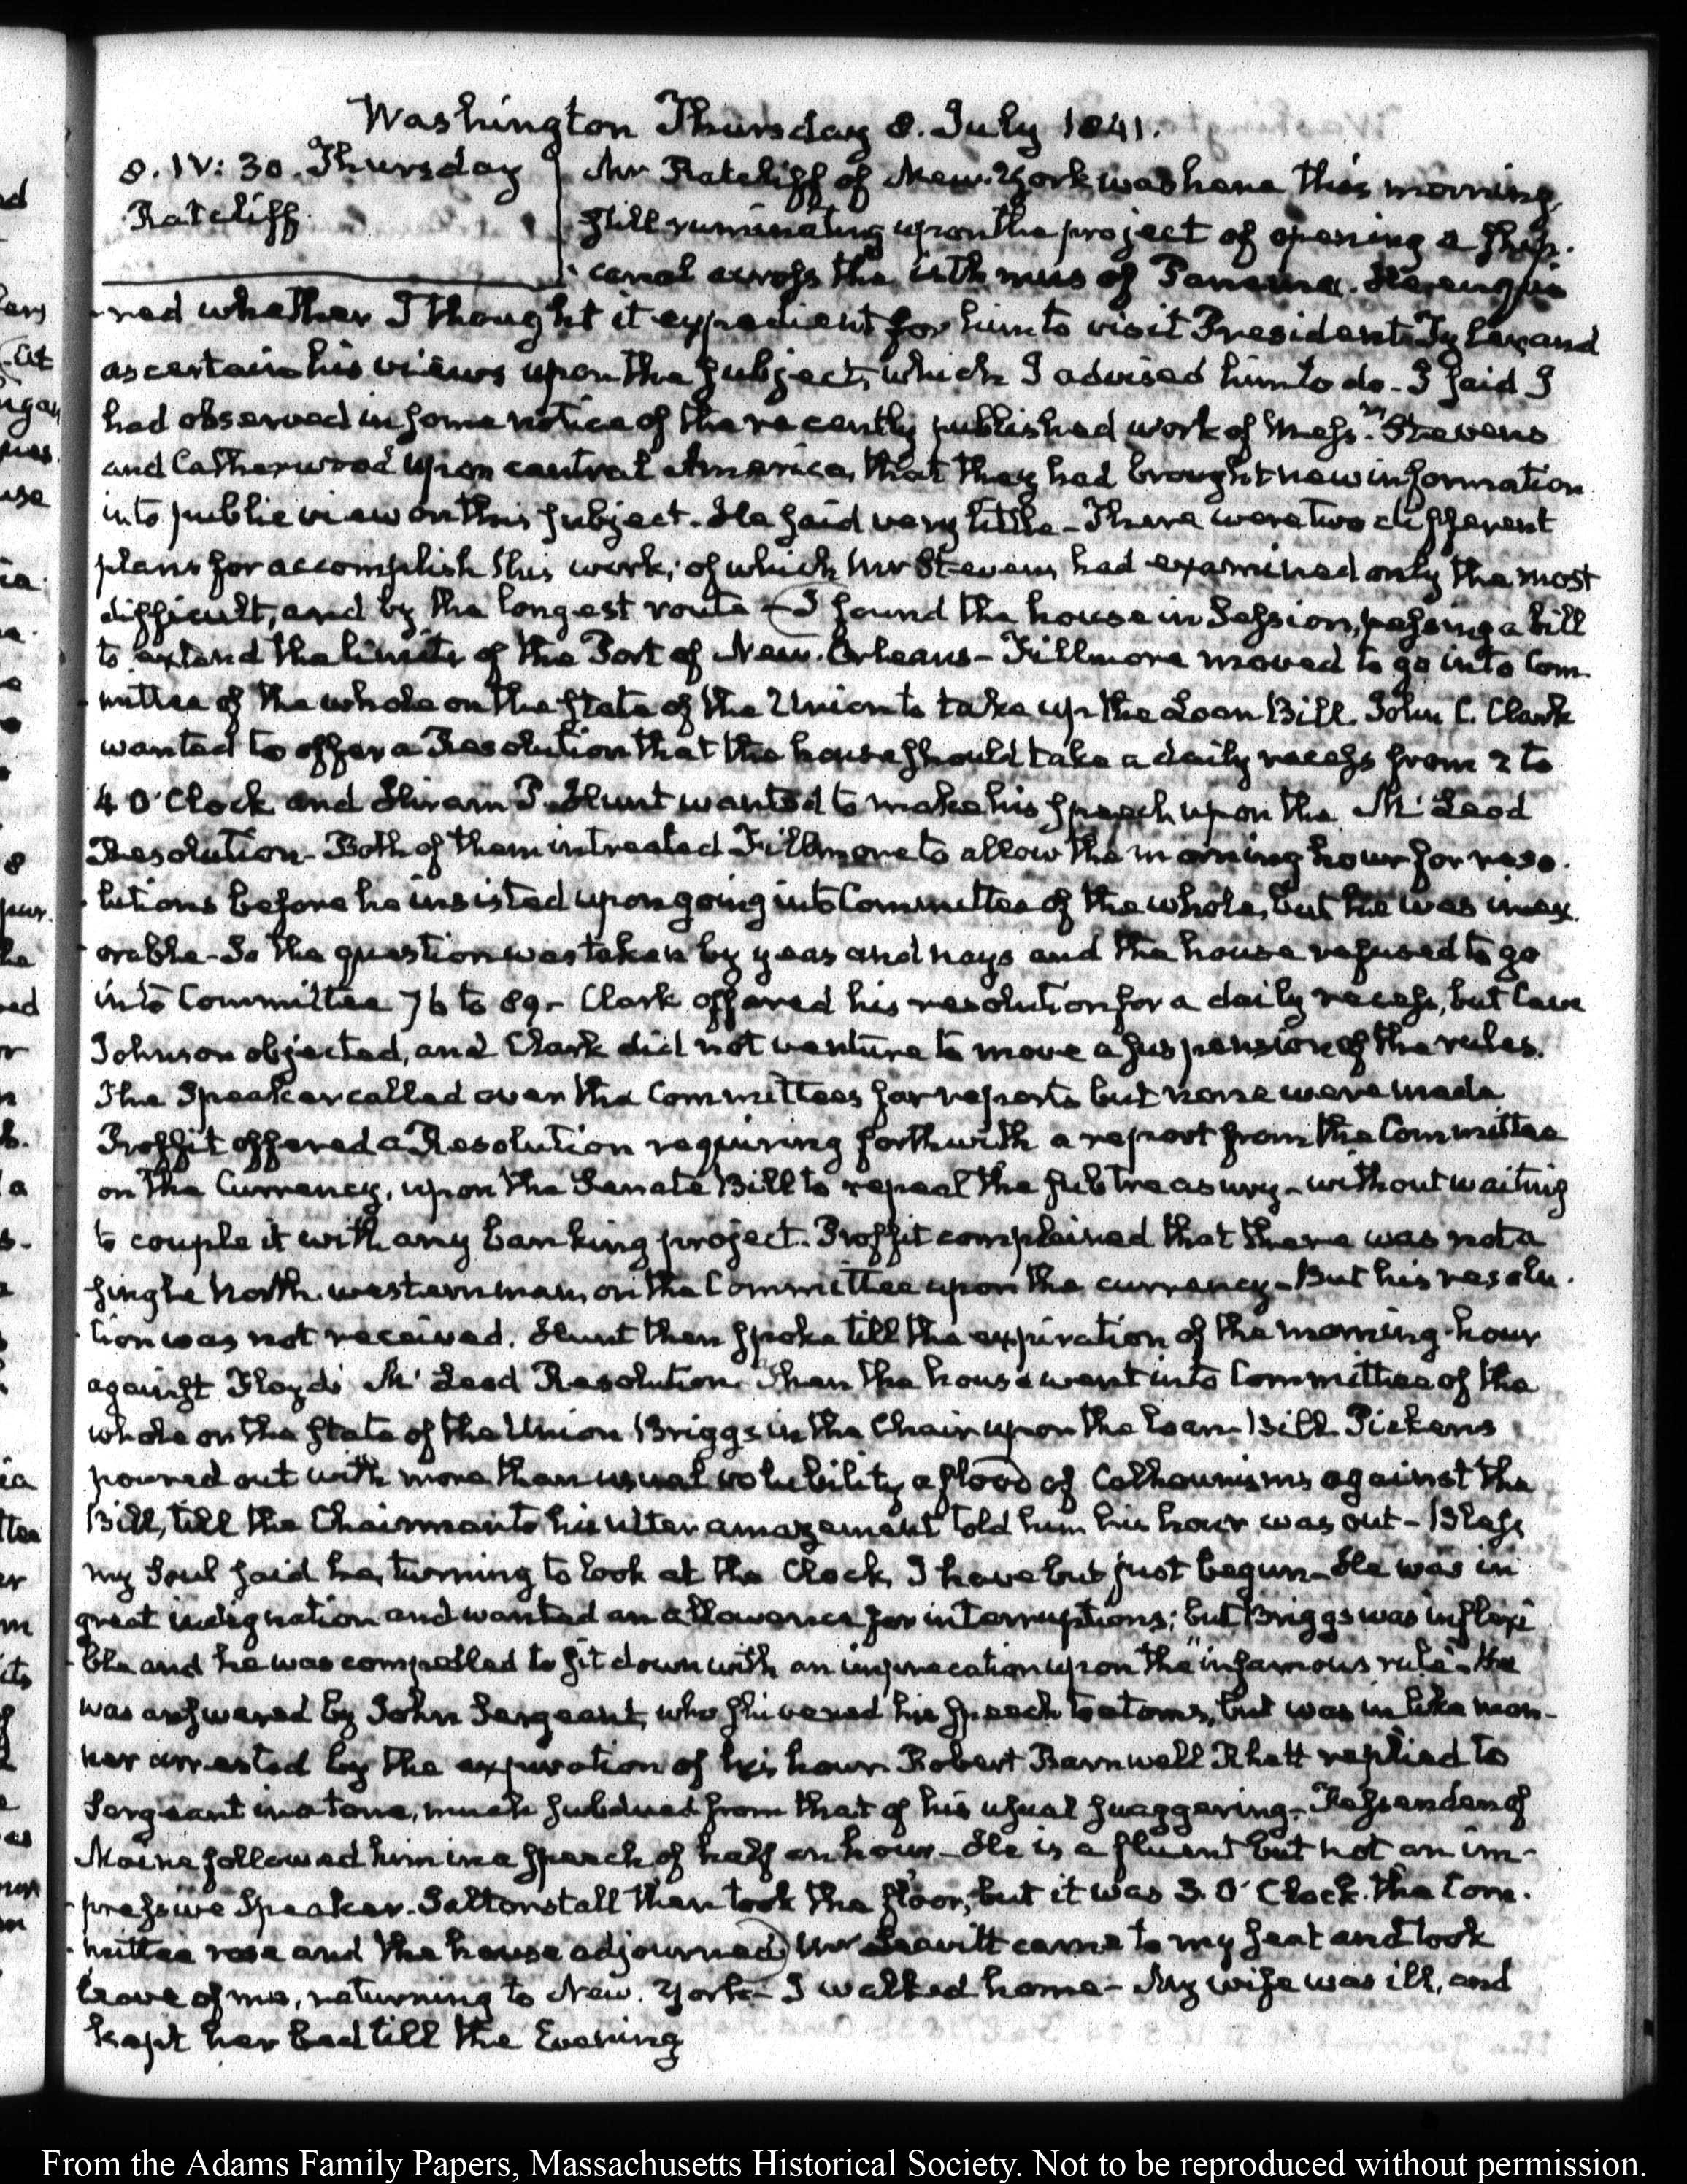 Washington Thursday 8. July 1841.
8. IV: 30. Thursday
Ratcliff
Mr Ratcliff of New-York was here this morning,
still ruminating upon the project of opening a ship-
canal across the isthmus of Panama. He enqui-
red whether I thought it expedient for him to visit President Tyler, and
ascertain his views upon the subject, which I advised him to do - I said I
had observed in some notice of the recently published work of Mess.rs Stevens
and Catherwood upon central America, that they had brought new information
into public view on this subject. He said very little - There were two different
plans for accomplish this work; of which Mr Stevens had examined only the most
difficult, and by the longest route - I found the house in Session, passing a bill
to extend the limits of the Port of New-Orleans - Fillmore moved to go into Com-
mittee of the whole on the state of the Union to take up the Loan Bill. John C. Clark
wanted to offer a Resolution that the house should take a daily recess from 2 to
4 O'Clock and Hiram P. Hunt wanted to make his speech upon the McLeod
Resolution - Both of them intreated Fillmore to allow the morning hour for reso-
lutions before he insisted upon going into Committee of the whole, but he was inex-
orable - So the question was taken by yeas and nays and the house refused to go
into Committee 76 to 89 - Clark offered his resolution for a daily recess, but Cave
Johnson objected, and Clark did not venture to move a suspension of the rules.
The Speaker called over the Committees for reports but none were made
Proffit offered a Resolution requiring forthwith a report from the Committee
on the Currency, upon the Senate Bill to repeal the subtreasury - without waiting
to couple it with any banking project. Proffit complained that there was not a
single North-western man, on the Committee upon the currency - But his resolu-
tion was not received. Hunt then spoke till the expiration of the morning-hour
against Floyd's McLeod Resolution. Then the house went into Committee of the
whole on the state of the Union Briggs in the Chair upon the Loan-Bill. Pickens
poured out with more than usual volubility a flood of Calhounisms against the
Bill, till the Chairman to his utter amazement told him his hour was out - Bless
my Soul said he, turning to look at the Clock, I have but just begun - He was in
great indignation and wanted an allowance for interruptions; but Briggs was inflexi-
ble and he was compelled to sit down with an imprecation upon the "infamous rule" - He
was answered by John Sergeant, who shivered his speech to atoms, but was in like man-
ner arrested by the expiration of his hour. Robert Barnwell Rhett replied to
Sergeant in a tone, much subdued from that of his usual swaggering - Fessenden of
Maine followed him in a speech of half an hour - He is a fluent but not an im-
pressive Speaker. Saltonstall then took the floor, but it was 3. O'Clock. the Com-
mittee rose and the house adjourned) Mr Leavitt came to my seat and took
leave of me, returning to New-York - I walked home - My wife was ill, and
kept her bed till the Evening
From the Adams Family Papers, Massachusetts Historical Society. Not to be reproduced without permission.